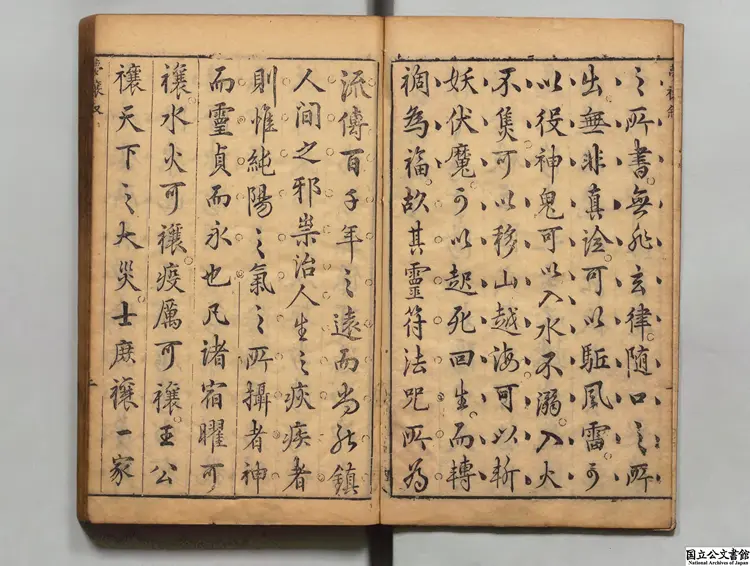 之所書。無非玄律。随口之所
出。無非真詮。可以駈風雷。可
以役神鬼。可以入水不溺。入火
不焦。可以移山越海。可以斬
妖伏魔。可以起死回生。而轉
禍為福。故其靈符法咒。所為
流傳百千年之遠。而尚能鎮
人間之邪祟。治人生之疾疾者。
則惟純陽之氣之所攝者。神
而靈。貞而永也。凡諸宿曜可
禳。水火可禳。疫厲可禳。王公
禳天下之大災。士庶禳一家
国立公文書館
National Archives of Japan